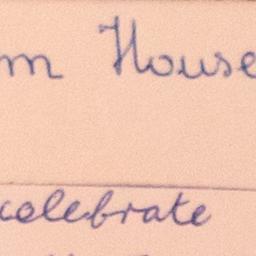 m House
celebrate